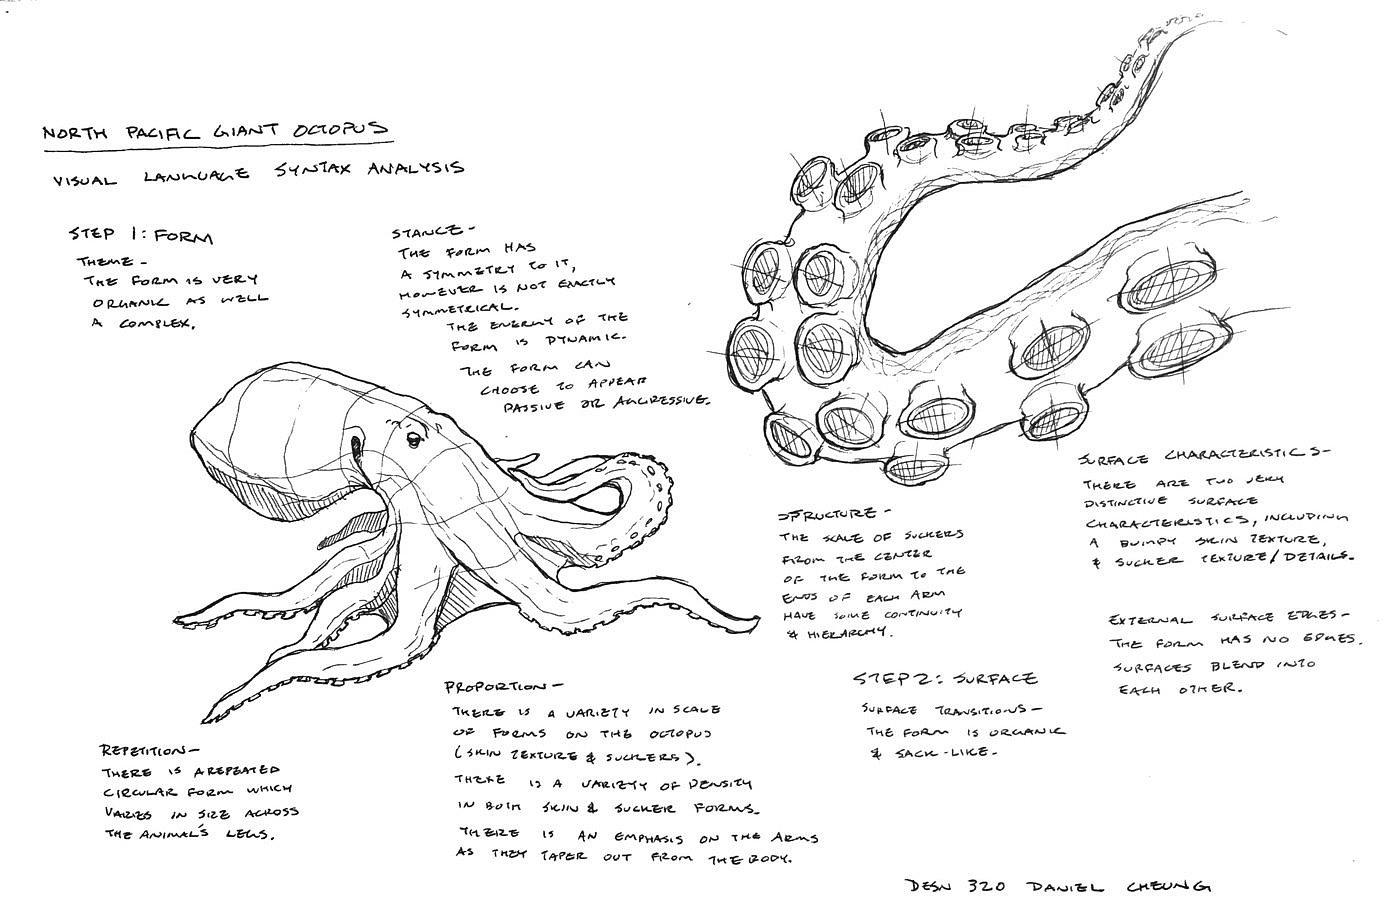 NORTH PACIFIC GIANT OCTOPUS
VISUAL LANGUAGE SYNTAX ANALYSIS
STEP 1: FORM
THEME -
THE FORM IS VERY
ORGANIC AS WELL
A COMPLEX.
STANCE -
THE FORM HAS
A SYMMETRY TO IT,
HOWEVER IS NOT EXACTLY
SYMMETRICAL.
THE ENERGY OF THE
FORM IS DYNAMIC.
THE FORM CAN
CHOOSE TO APPEAR
PASSIVE OR AGGRESSIVE.
REPETITION -
THERE IS A REPEATED
CIRCULAR FORM WHICH
VARIES IN SIZE ACROSS
THE ANIMAL'S LEGS.
PROPORTION -
THERE IS A VARIETY IN SCALE
OF FORMS ON THE OCTOPUS
(SKIN TEXTURE & SUCKERS).
THERE IS A VARIETY OF DENSITY
IN BOTH SKIN & SUCKER FORMS.
THERE IS AN EMPHASIS ON THE ARMS
AS THEY TAPER OUT FROM THE BODY.
STRUCTURE -
THE SCALE OF SUCKERS
FROM THE CENTER
OF THE FORM TO THE
ENDS OF EACH ARM
HAVE SOME CONTINUITY
& HIERARCHY.
STEP 2: SURFACE
SURFACE TRANSITIONS -
THE FORM IS ORGANIC
& SACK-LIKE.
SURFACE CHARACTERISTICS -
THERE ARE TWO VERY
DISTINCTIVE SURFACE
CHARACTERISTICS, INCLUDING
A BUMPY SKIN TEXTURE,
& SUCKER TEXTURE/DETAILS.
EXTERNAL SURFACE EDGES -
THE FORM HAS NO EDGES.
SURFACES BLEND INTO
EACH OTHER.
DESN 320 DANIEL CHEUNG